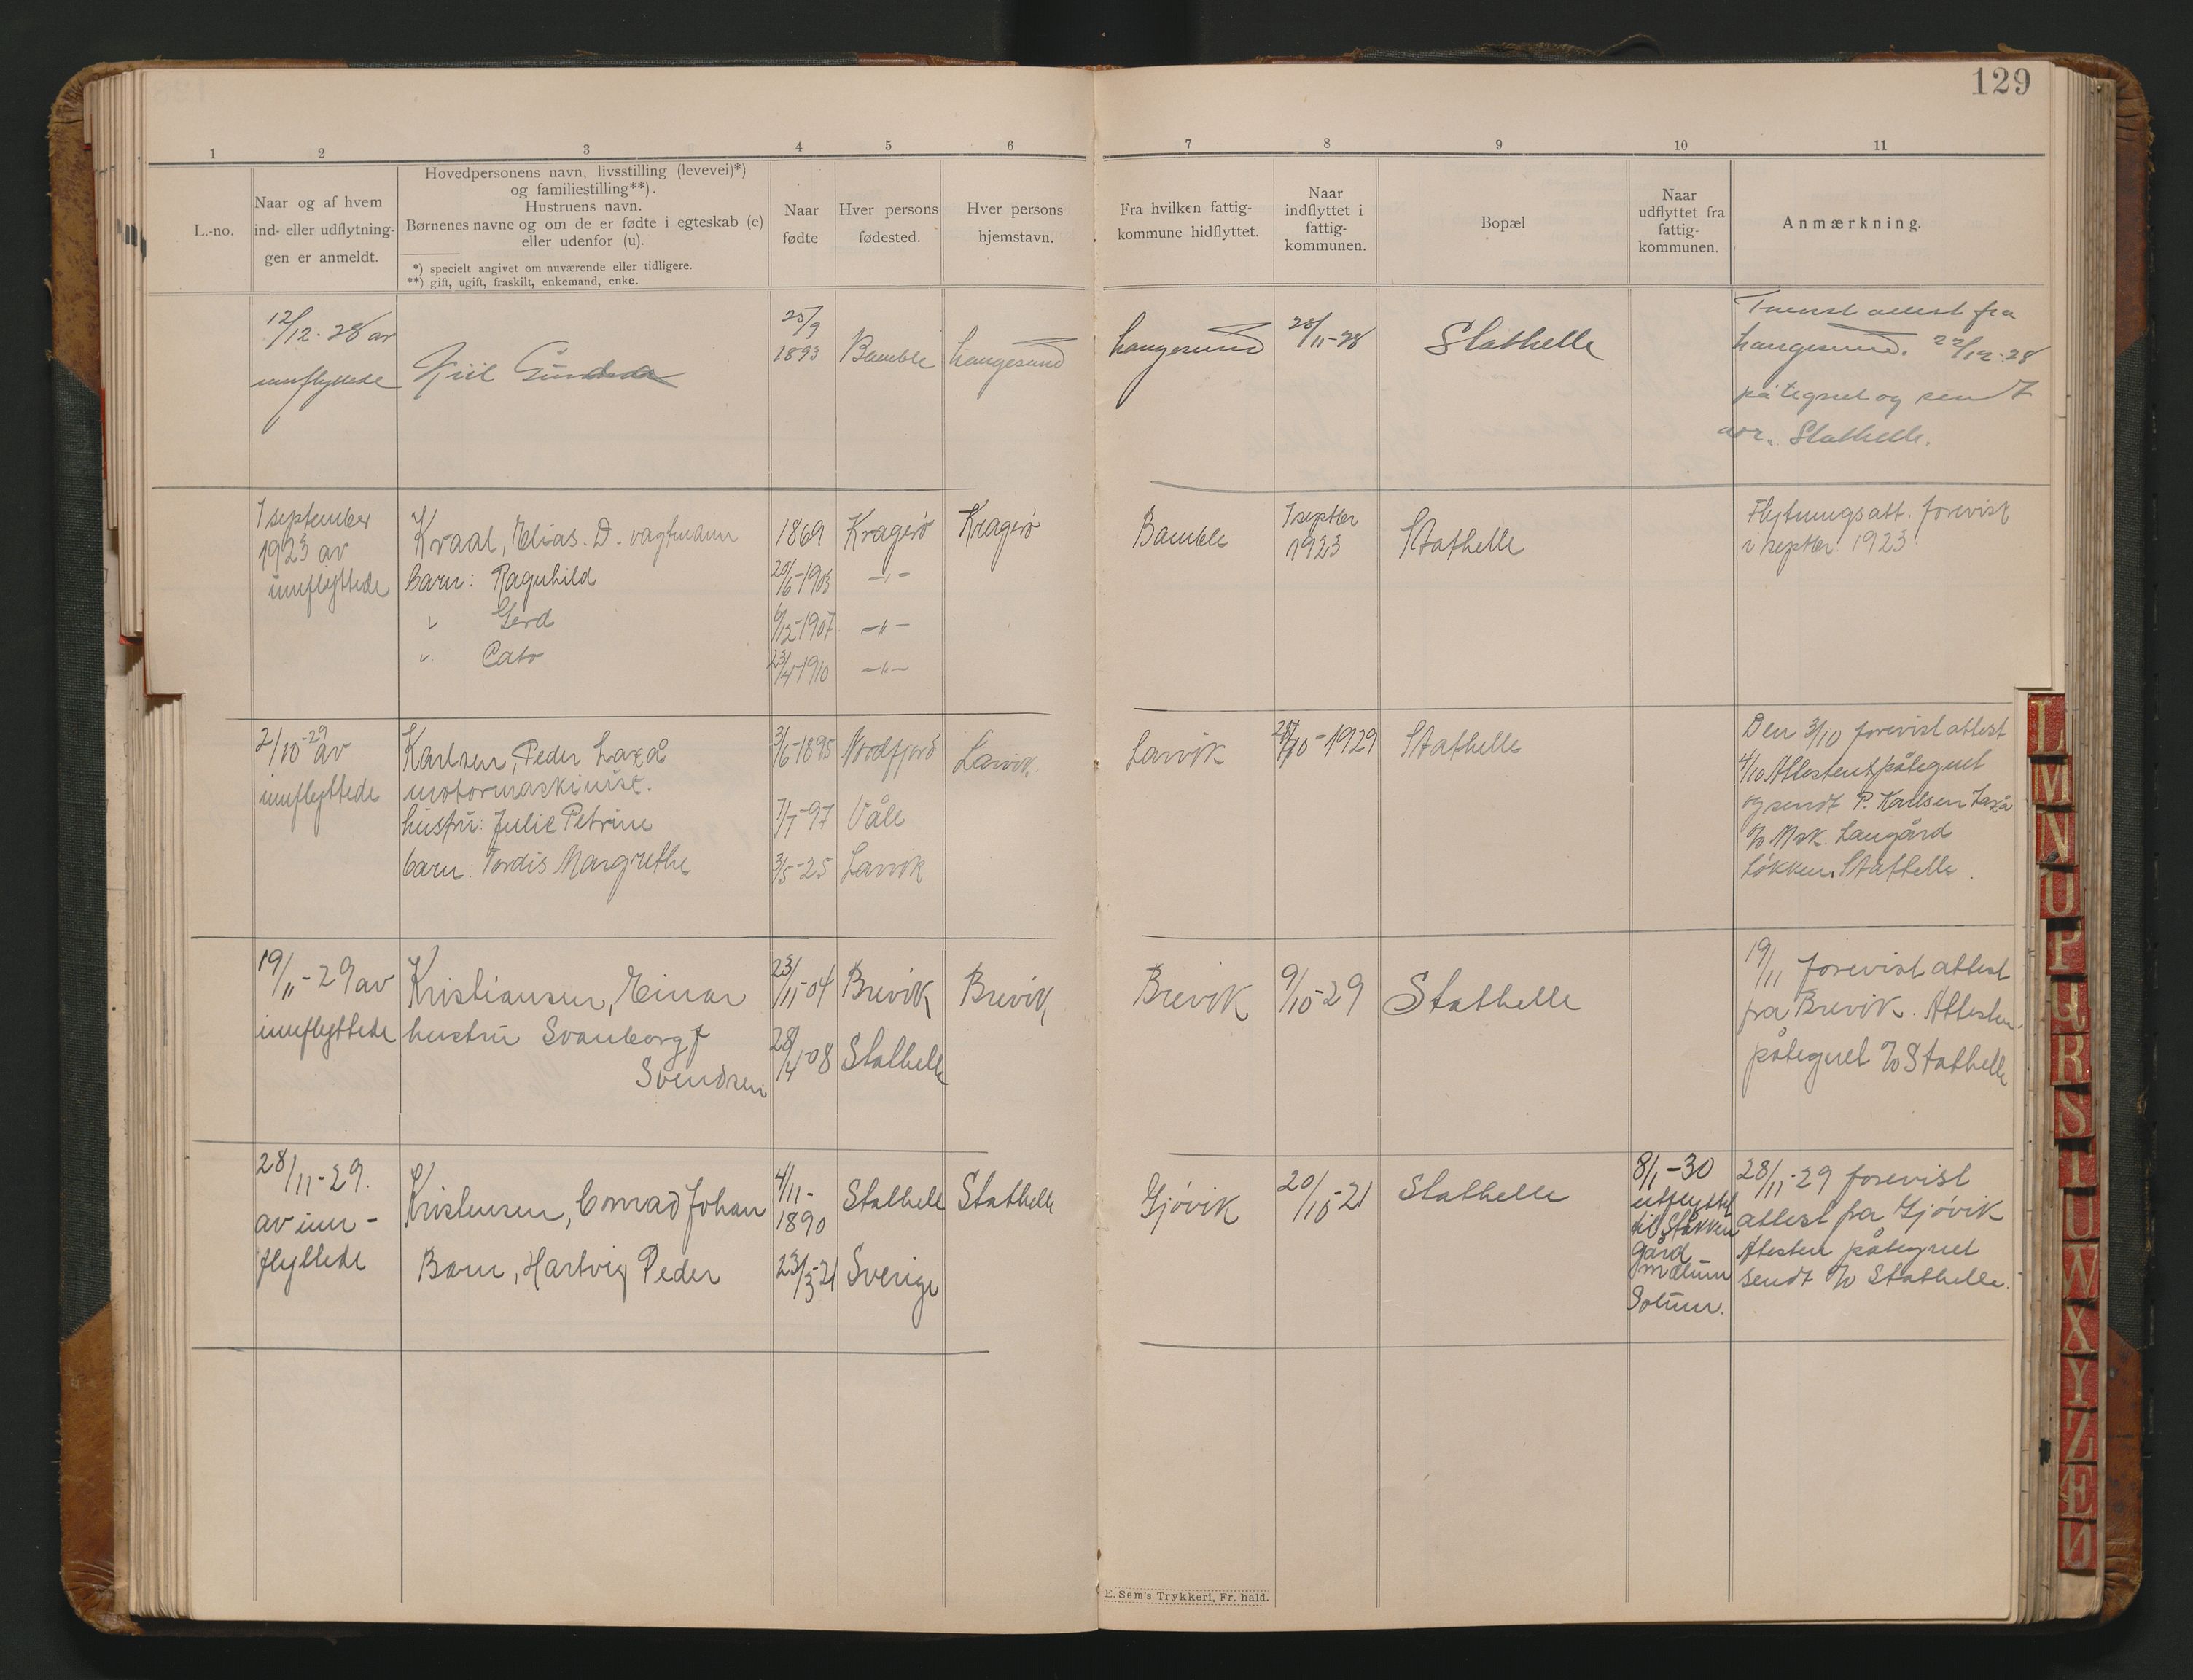 129
1 2 3 4 5 6 7 8 9 10 11
L.-no.
Naar og af hvem
ind- eller udflytnin-
gen er anmeldt.
Hovedpersonens navn, livsstilling (levevei)*)
og familiestilling**).
Hustruens navn.
Børnenes navne og om de er fødte i egteskab (e)
eller udenfor (u).
*) specielt angivet om nuværende eller tidligere.
**) gift, ugift, fraskilt, enkemand, enke.
Naar
fødte
Hver persons
fødested.
Hver persons
hjemstavn.
Fra hvilken fattig-
kommune hidflyttet.
Naar
indflyttet i
fattig-
kommunen.
Bopæl
Naar
udflyttet fra
fattig-
kommunen.
Anmærkning.
12/12-28 av
innflyttede
25/9
1893
Bamble
Langesund
Langesund
28/11-28
Stathelle
attest fra
Langesund. 22/12-28
påtegnet og sendt
Stathelle.
1 september
1923 av
innflyttede
Kraal, Elias. D. vagtmann
barn: Ragnhild
" Gerd
" Cato
1869
20/6-1903
6/12-1907
23/4-1910
Kragerö
-"-
-"-
-"-
Kragerö
Bamble
1 septbr
1923
Stathelle
Flytningsatt. forevist
i septbr. 1923
2/10-29 av
innflyttede
Karlsen, Peder Laxå
motormaskinist.
hustru: Julie Petrine
barn: Tordis Margrethe
3/6-1895
7/7-97
3/5-25
Nordfjord
Våle
Larvik
Larvik.
Larvik
-1929
Stathelle
Den 3/10 forevist attest
4/10 Attesten påtegnet
og sendt P. Karlsen Laxå
% Mek. Laugård
Løkken, Stathelle.
19/11-29 av
innflyttede
Kristiansen, Einar
hustru Svanborg f
Svendsen
23/11-04
28/4-08
Brevik
Stathelle
Brevik,
Brevik
9/10-29
Stathelle
19/11 forevist attest
fra Brevik. Attesten
påtegnet % Stathelle
28/11-29.
av inn-
flyttede
Kristensen, Conrad Johan
Barn, Hartvig Peder
4/11-
1890
23/3-21
Stathelle
Sverige
Stathelle
Gjövik
20/10-21
Stathelle
8/1-30
utflyttet
til Stokken
gård
Mælum
Solum.
28/11-29 forevist
attest fra Gjövik
Attesten påtegnet
sendt % Stathelle.
E. Sem's Trykkeri, Fr. hald.
L
M
N
O
P
Q
R
S
T
U
W
X
Y
Z
Æ